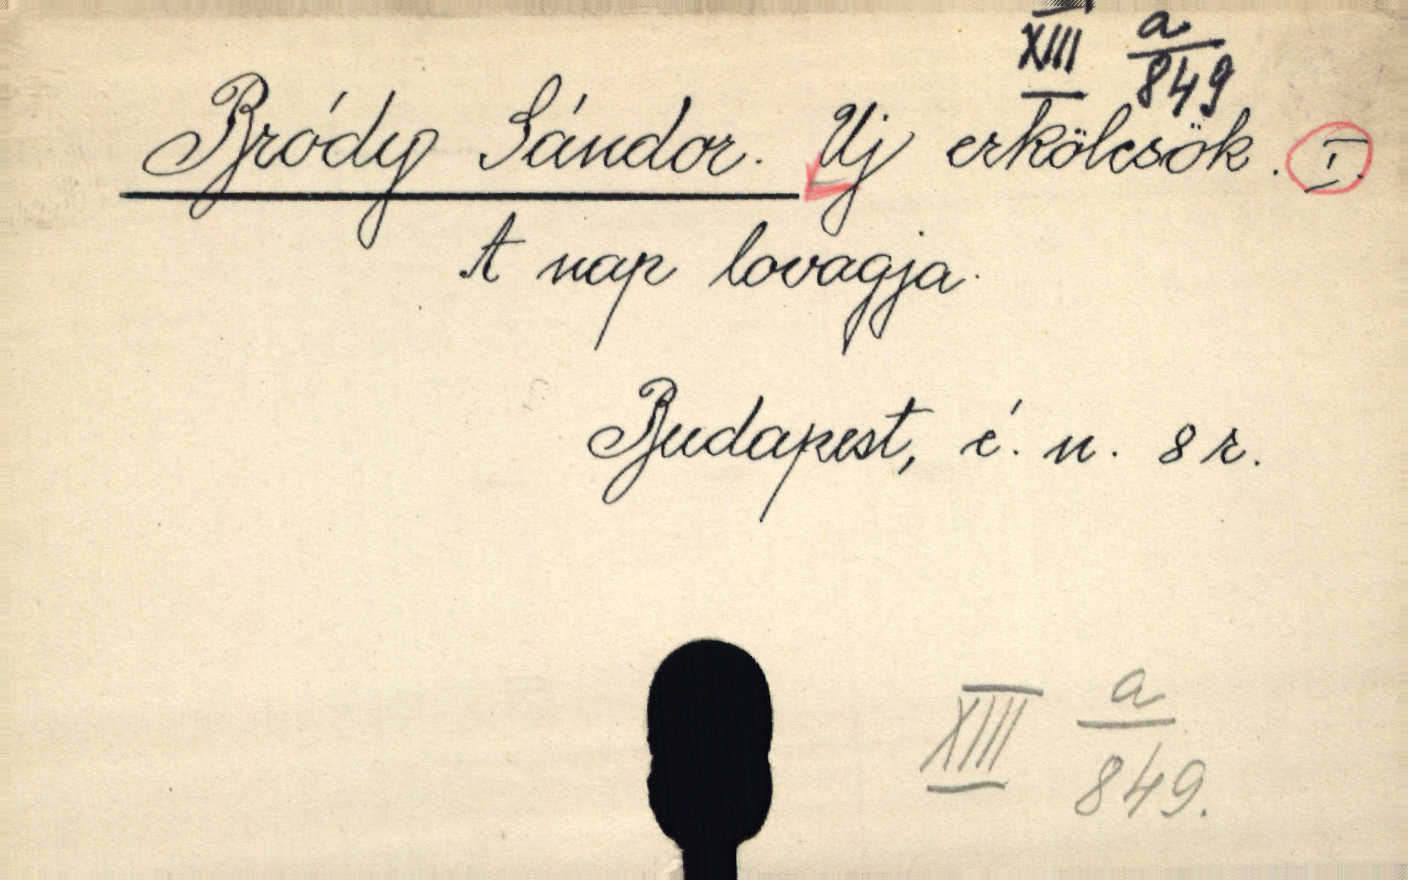 XIII a/849
Bródy Sándor. Uj erkölcsök. I.
A nap lovagja.
Budapest, é. n. 8 r.
XIII a/849.